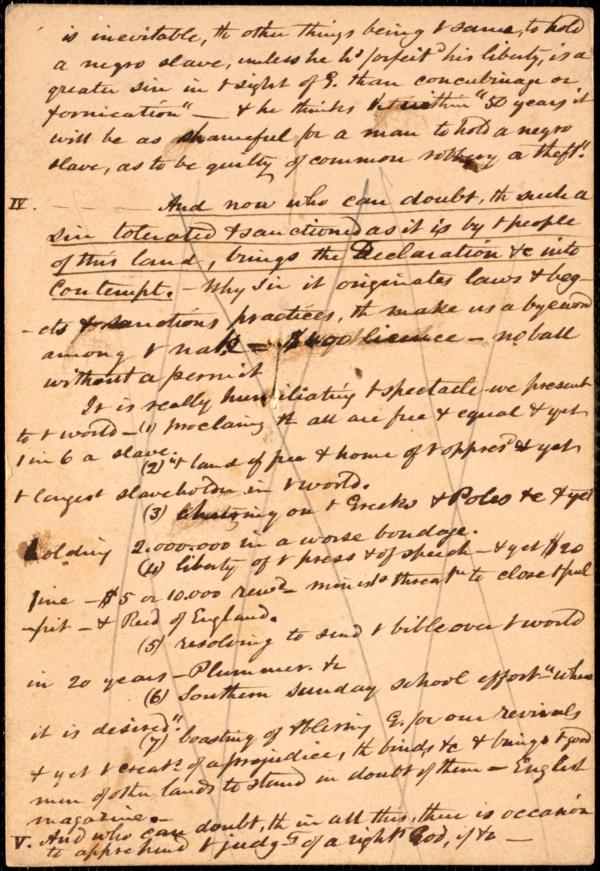 is inevitable, th other things being t same, to hold
a negro slave, unless he hs forfeitd his liberty, is a
greater sin in t sight of G. than concubinage or
fornication" — & he thinks tht within "50 years it
will be as shameful for a man to hold a negro
slave, as to be guilty of common robbery or theft."
IV. And now who can doubt, th such a
sin tolerated & sanctioned as it is by t people
of this land, brings the Declaration &c into
Contempt. — Why Sir it originates laws & beg-
-ets & sanctions practices, th make us a byeword
among t nats — licence — no ball
without a permit
It is really humiliating t spectacle we present
to t world — (1) proclaimg th all are free & equal & yet
1 in 6 a slave.
(2) "t land of free & home of t oppresd & yet
t largest slaveholder in t world.
(3) on t Greeks & Poles &c & yet
holding 2.000.000 in a worse bondage.
(4) liberty of t press & of speech — & yet $20
fine — $5 or 10.000 rewd — minists threatn to close t pul
-pit — & Reed of England.
(5) resolving to send t bible over t world
in 20 years — Plummer. &c
(6) Southern Sunday school effort "where
it is desired".
(7) boasting of & blessing G. for our revivals
& yet t creats of a prejudice, th binds &c & brings t good
men of other lands to stand in doubt of them — English
magazine. —
V. And who can doubt, th in all this, there is occasion
to apprehend t judgts of a right God, if &c —